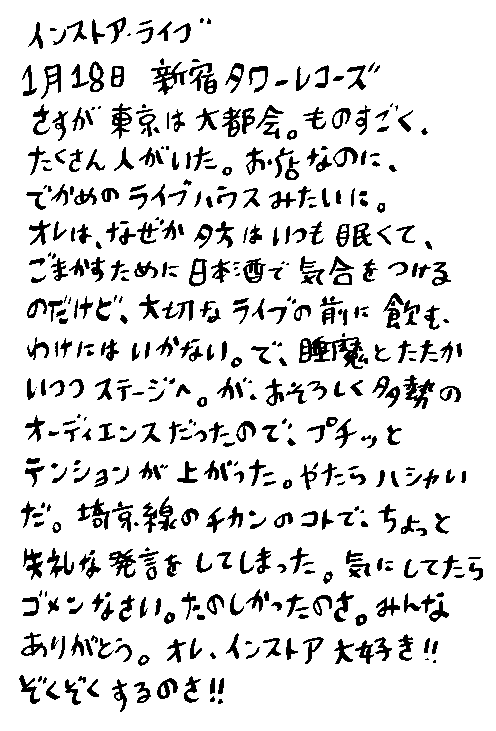 インストア・ライブ
1月18日 新宿タワーレコーズ
さすが東京は大都会。ものすごく、
たくさん人がいた。お店なのに、
でかめのライブハウスみたいに。
オレは、なぜか夕方はいつも眠くて、
ごまかすために日本酒で気合をつける
のだけど、大切なライブの前に飲む、
わけにはいかない。で、睡魔とたたか
いつつステージへ。が、おそろしく多勢の
オーディエンスだったので、プチッと
テンションが上がった。やたらハシャい
だ。埼京線のチカンのコトで、ちょっと
失礼な発言をしてしまった。気にしてたら
ゴメンなさい。たのしかったのさ。みんな
ありがとう。オレ、インストア大好き!!
ぞくぞくするのさ!!